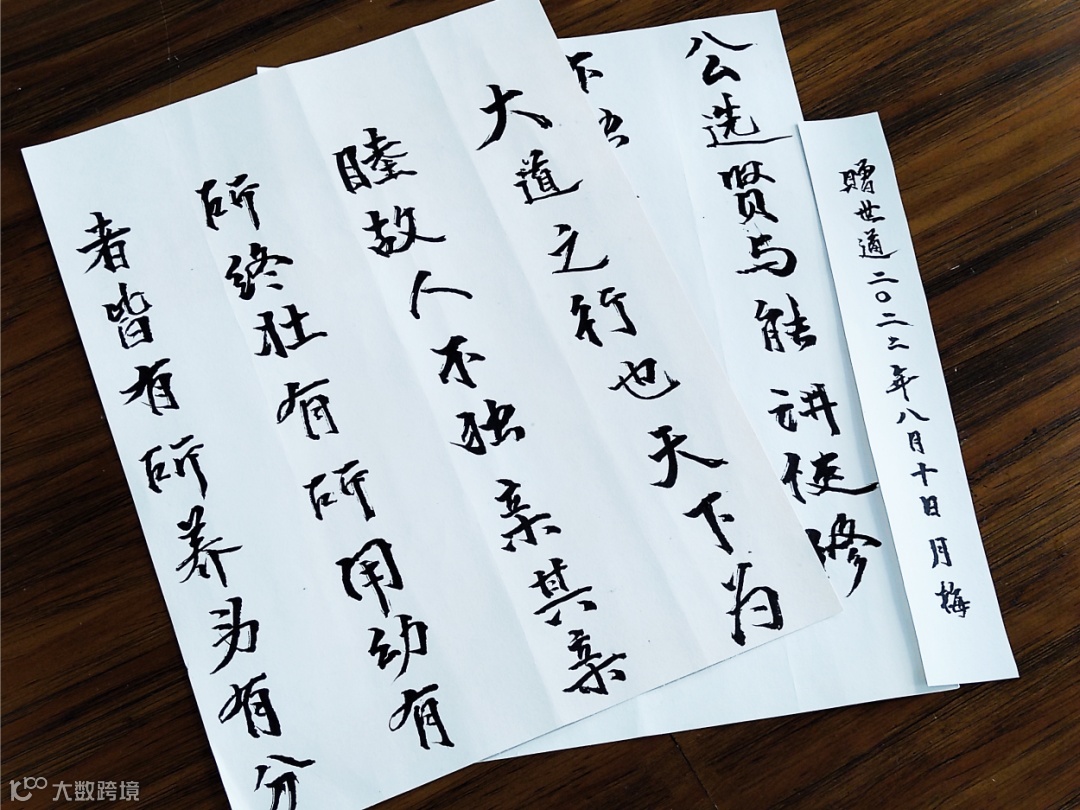 大道之行也天下为
睦故人不独亲其亲
所终壮有所用幼有
者皆有所养男有分
公选贤与能讲信修
赠世道二〇二二年八月十日月梅
大数跨境